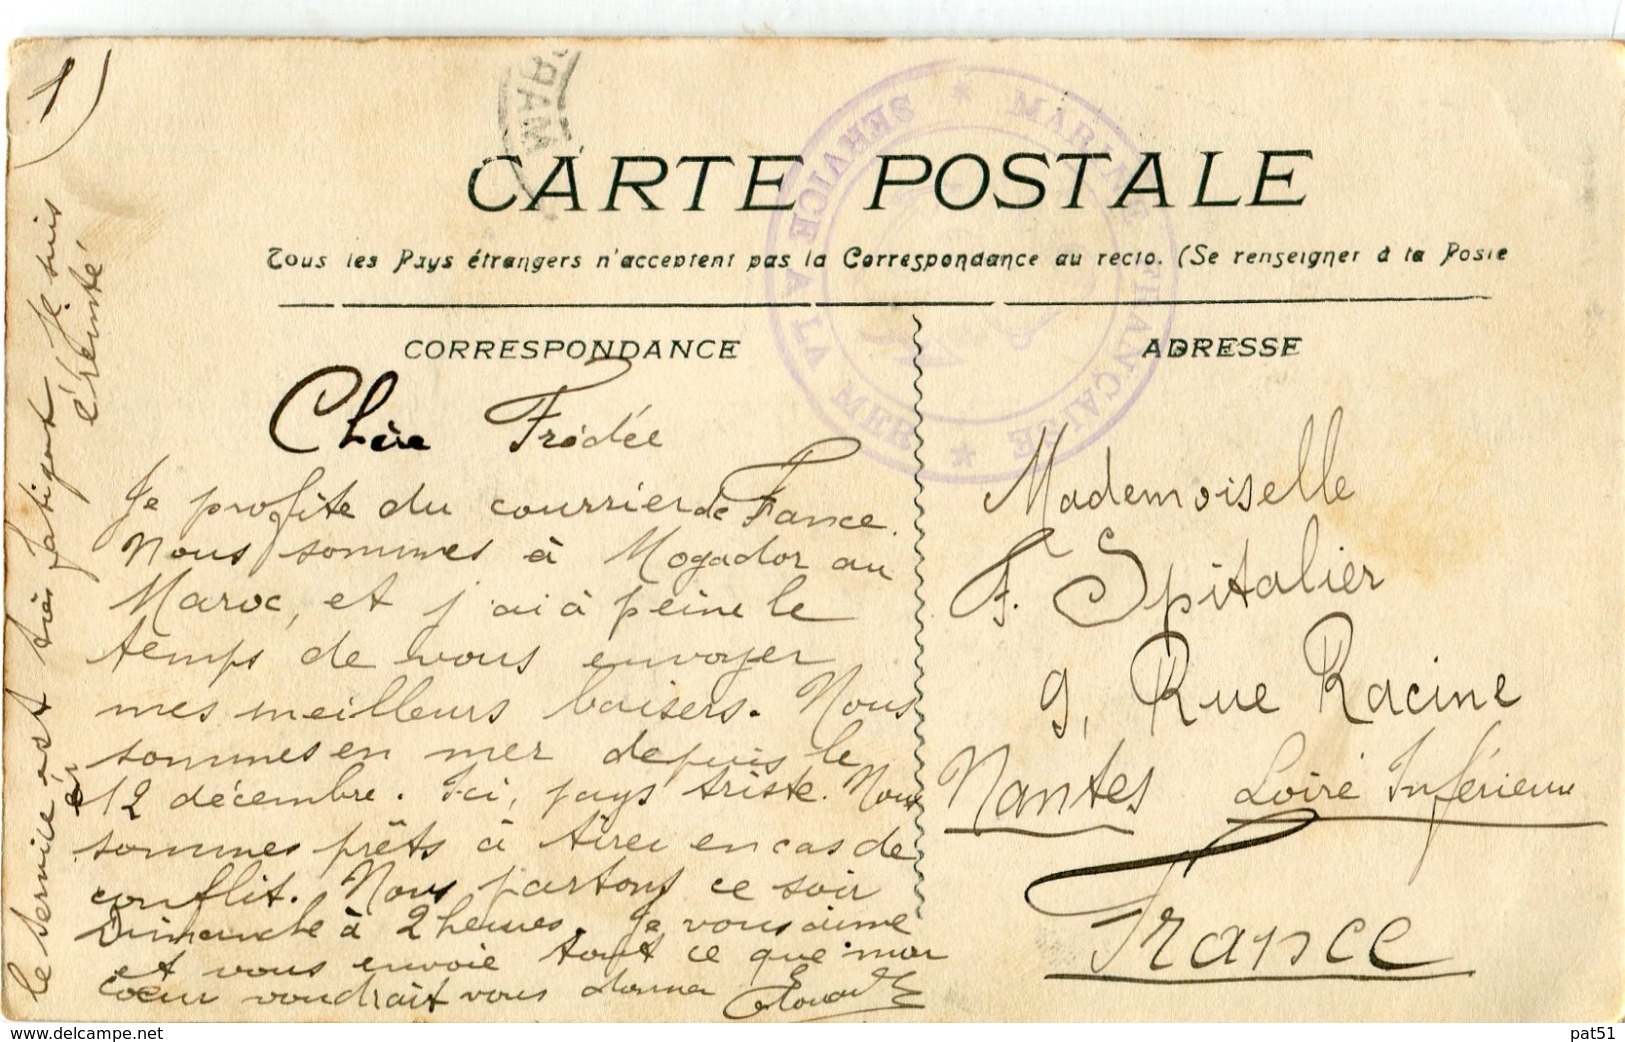 1)
RAM
CARTE POSTALE
SERVICE A LA MER * MARINE FRANÇAISE *
Tous les Pays étrangers n'acceptent pas la Correspondance au recto. (Se renseigner à la Poste
CORRESPONDANCE
ADRESSE
Chère Frédée
Je profite du courrier de France.
Nous sommes à Mogador au
Maroc, et j'ai à peine le
temps de vous envoyer
mes meilleurs baisers. Nous
sommes en mer depuis le
12 décembre. Ici, pays triste. Nous
sommes prêts à tirer en cas de
conflit. Nous partons ce soir
Dimanche à 2 heures. Je vous aime
et vous envoie tout ce que mon
coeur voudrait vous donner Edouard
le service est très fatigant Je suis
éreinté
Mademoiselle
F. Spitalier
9, Rue Racine
Nantes Loire Inférieure
France
pat51